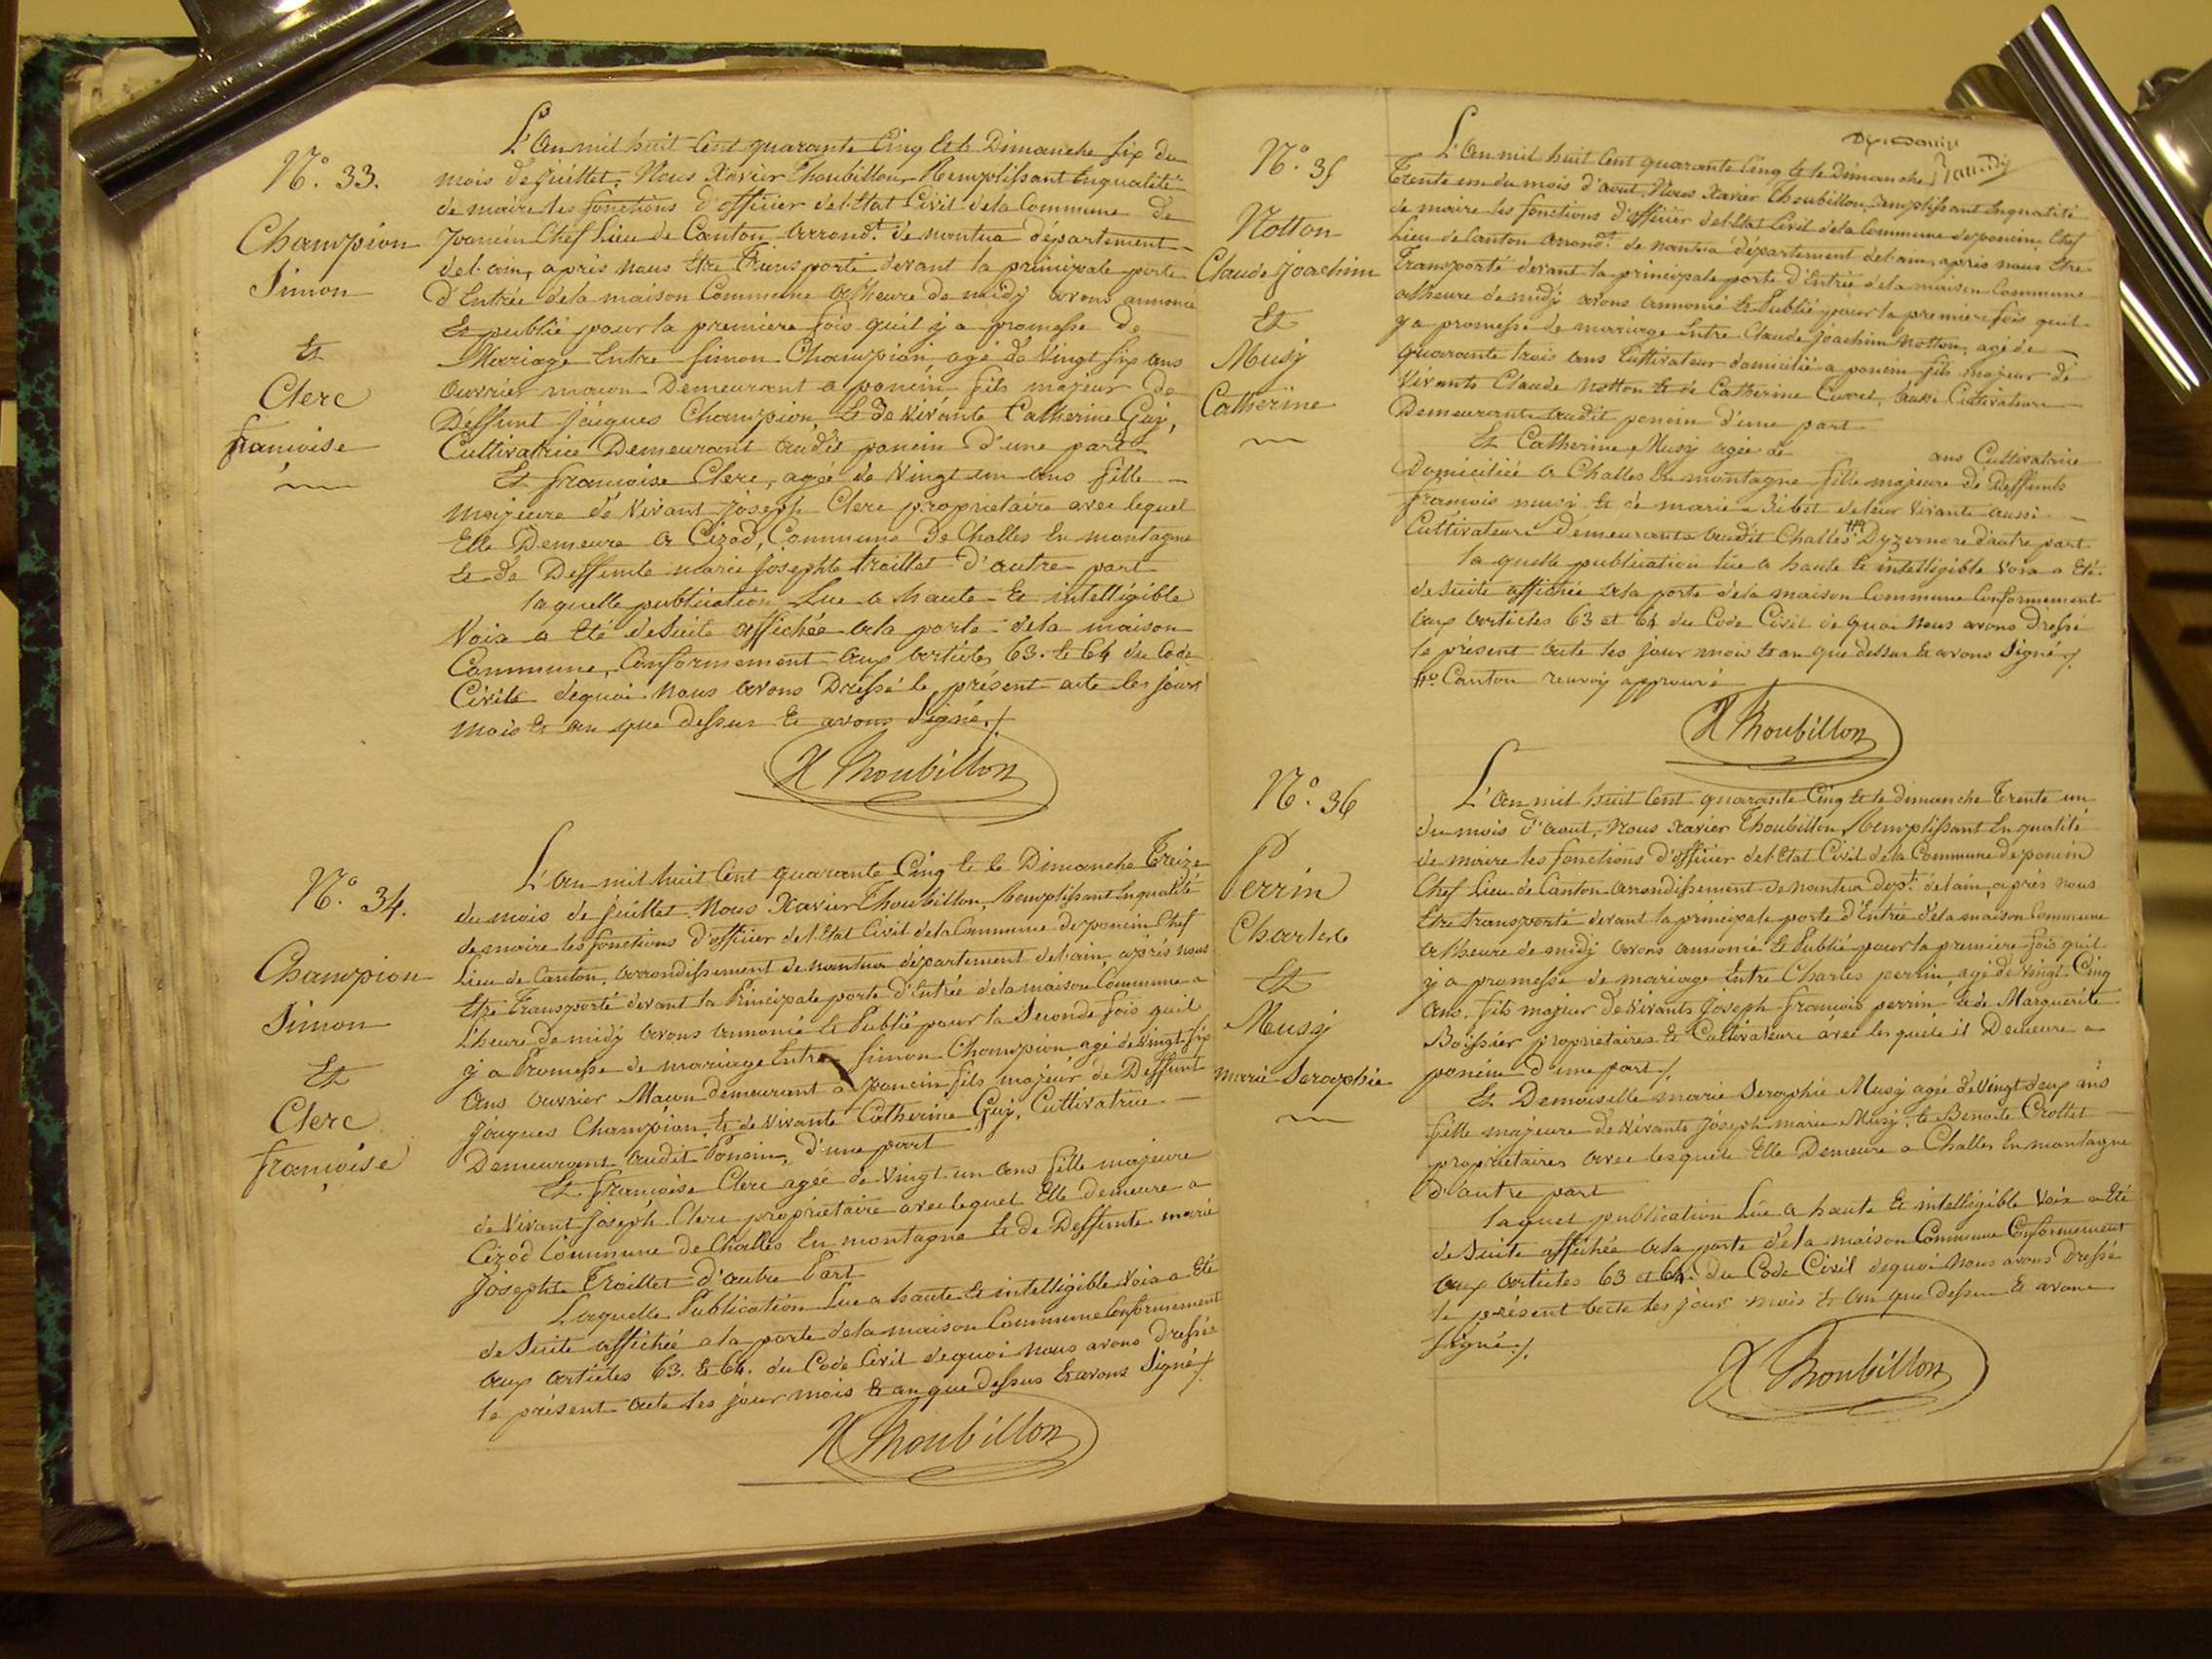 N.º 33.
Champion
Simon
Et
Clerc
françoise
L'An mil huit Cent quarante Cinq Et le Dimanche six du
mois de juillet, Nous Xavier Thoubillon Remplissant Enqualité
de maire les fonctions d'officier del'Etat Civil dela Commune de
poncin Chef Lieu de Canton arrond.t de nantua département
del'ain, après nous Etre Transporté devant la principale porte
d'Entrée dela maison Commune al'heure de midy avons annoncé
Et publié pour la premiere fois quil y a promesse de
Mariage Entre Simon Champion, agé de Vingt six ans
ouvrier macon Demeurant a poncin fils majeur de
Deffunt Jacques Champion, Et de Vivante Catherine Guy,
Cultivatrice Demeurant audit poncin d'une part
Et françoise Clerc, agée de Vingt un ans fille
majeure de Vivant joseph Clerc propriétaire avec lequel
Elle Demeure a Cizod, Commune de Challes En montagne
Et de Deffunte marie josephte Traillet d'autre part
laquelle publication Lue a haute Et intelligible
Voix a Eté deSuite affichée ala porte dela maison
Commune, Conformement aux articles 63. Et 64 du Code
Civile dequoi nous avons Dressé le présent acte les jours
mois Et an que dessus Et avons Signé./.
X Thoubillon
N.º 34.
Champion
Simon
Et
Clerc
françoise
L'An mil huit Cent quarante Cinq Et le Dimanche Treize
du mois de juillet. Nous Xavier Thoubillon, Remplissant Enqualité
demaire les fonctions d'officier del'Etat Civil dela Commune deponcin Chef
Lieu de Canton, arrondissement de nantua département del'ain, après nous
Etre Transporté devant la Principale porte d'Entrée dela maison Commune a
l'heure de midy avons annoncé Et Publié pour la Seconde fois quil
y a Promesse de mariage Entre Simon Champion agé de Vingt six
ans ouvrier Maçon demeurant a poncin fils majeur de Deffunt
jacques Champion, Et de Vivante Catherine Guy, Cultivatrice
Demeurant audit Poncin, d'une part
Et françoise Clerc agée de Vingt un ans fille majeure
de Vivant joseph Clerc propriétaire avec lequel Elle demeure a
Cizod Commune de Challes En montagne Et de Deffunte marie
josephte Traillet d'autre Part
Laquelle Publication Lue a haute Et intelligible Voix a Eté
de Suite affichée a la porte dela maison Commune Conformement
aux articles 63. Et 64. du Code Civil dequoi nous avons dressé
le présent acte les jour mois Et an que dessus Et avons Signé./.
X Thoubillon
N.º 35
Notton
Claude joachim
Et
Musy
Catherine
L'An mil huit Cent quarante Cinq Et le Dimanche
Trente un du mois d'aout, Nous Xavier Thoubillon, Remplissant Enqualité
de maire les fonctions d'officier del'Etat Civil dela Commune deponcin, Chef
Lieu de Canton arrond.t de nantua département del'ain, après nous Etre
Transporté devant la principale porte d'Entrée dela maison Commune
alheure de midy avons annoncé Et Publié pour la premiere fois quil
y a promesse de mariage Entre Claude joachim Notton, agé de
quarante trois ans Cultivateur domicilié a poncin fils majeur de
Vivants Claude Notton Et de Catherine Curvel, aussi Cultivateurs
Demeurants audit poncin d'une part
Et Catherine Musy agée de ans Cultivatrice
Domiciliée a Challes En montagne fille majeure de Deffunts
françois musi Et de marie Bibet deleur Vivants aussi
Cultivateurs Demeurants audit Challes Dyzernore dautre part
la quelle publication lue a haute Et intelligible Voix a Eté
deSuite affichée ala porte dela maison Commune Conformement
aux articles 63 et 64 du Code Civil de quoi nous avons Dressé
le présent acte les jour mois Et an que dessus Et avons Signé./.
Canton renvoy approuvé
X Thoubillon
N.º 36
Perrin
Charles
Et
Musy
marie Seraphie
L'An mil huit Cent quarante Cinq Et le dimanche Trente un
du mois d'aout, Nous Xavier Thoubillon, Remplissant Enqualité
de maire les fonctions d'officier del'Etat Civil dela Commune deponcin
Chef Lieu de Canton arrondissement de nantua dep.t del'ain, après nous
Etre Transporté devant la principale porte d'Entrée dela maison Commune
a l'heure de midy avons annoncé Et Publié pour la premiere fois quil
y a promesse de mariage Entre Charles perrin, agé de Vingt Cinq
ans, fils majeur de Vivants joseph françois perrin Et de Marguerite
Boissier propriétaires Et Cultivateurs avec lesquels il Demeure a
poncin d'une part./.
Et Demoiselle marie Seraphie Musy agée de Vingt deux ans
fille majeure de Vivants joseph marie Musy, Et Benoite Crottet
propriétaires avec lesquels Elle Demeure a Challes En montagne
d'autre part
laquel publication Lue a haute Et intelligible Voix a Eté
de Suite affichée ala porte dela maison Commune Conformement
aux articles 63 et 64. du Code Civil dequoi nous avons Dressé
le présent acte les jour mois Et an que dessus Et avons
Signé./.
X Thoubillon